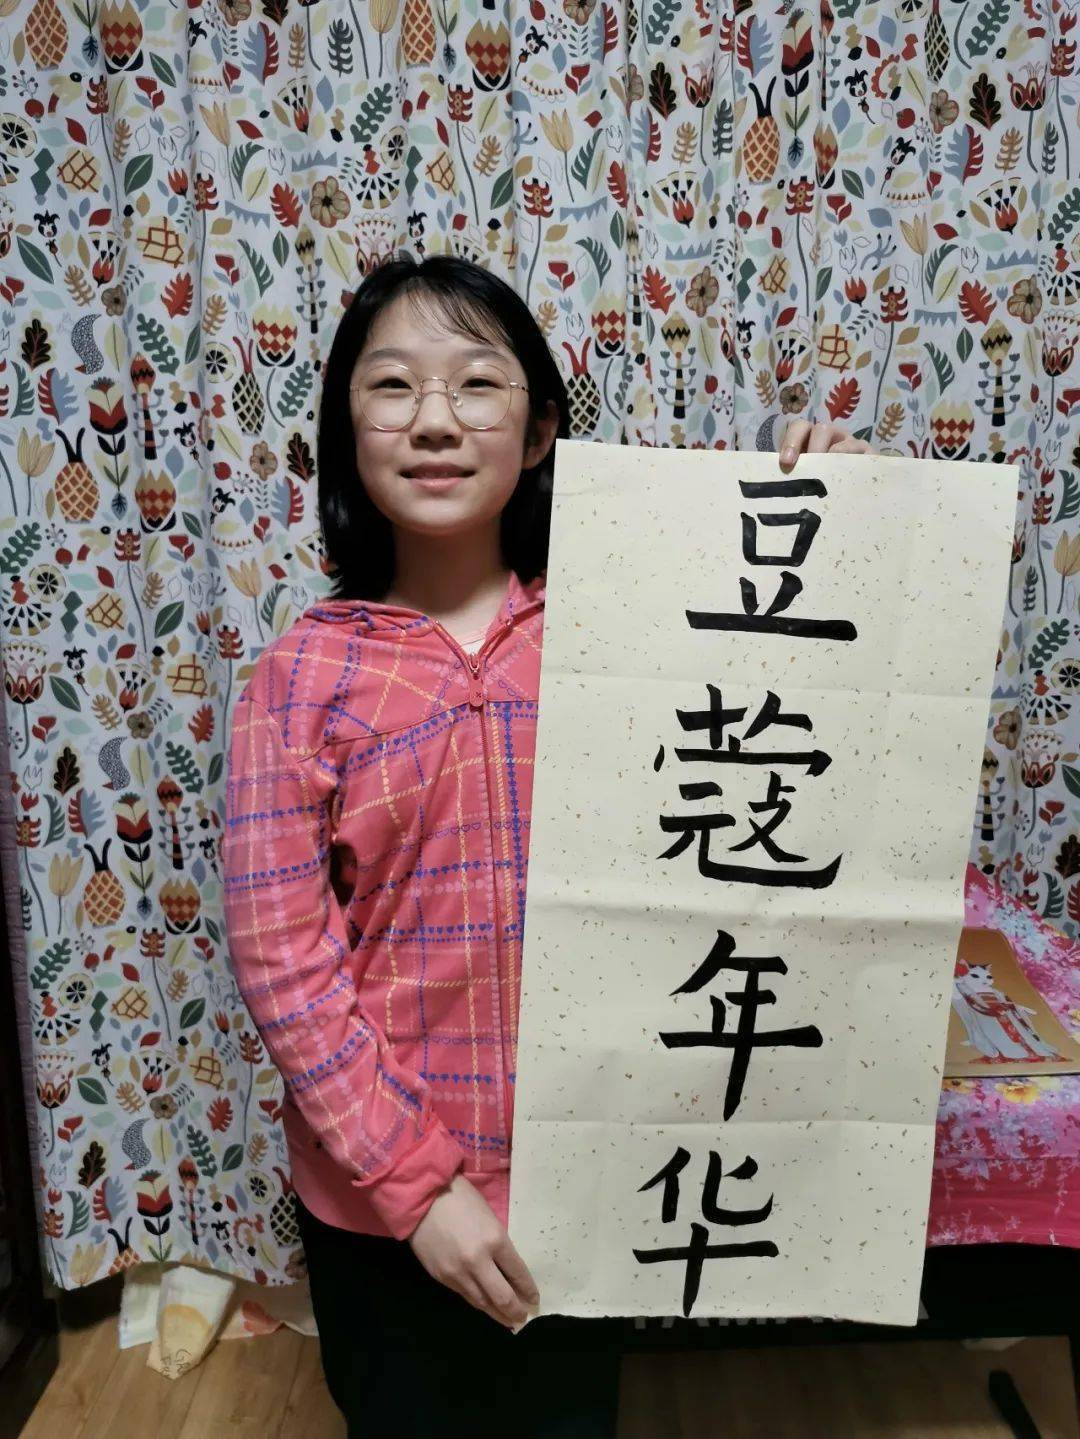 豆蔻年华